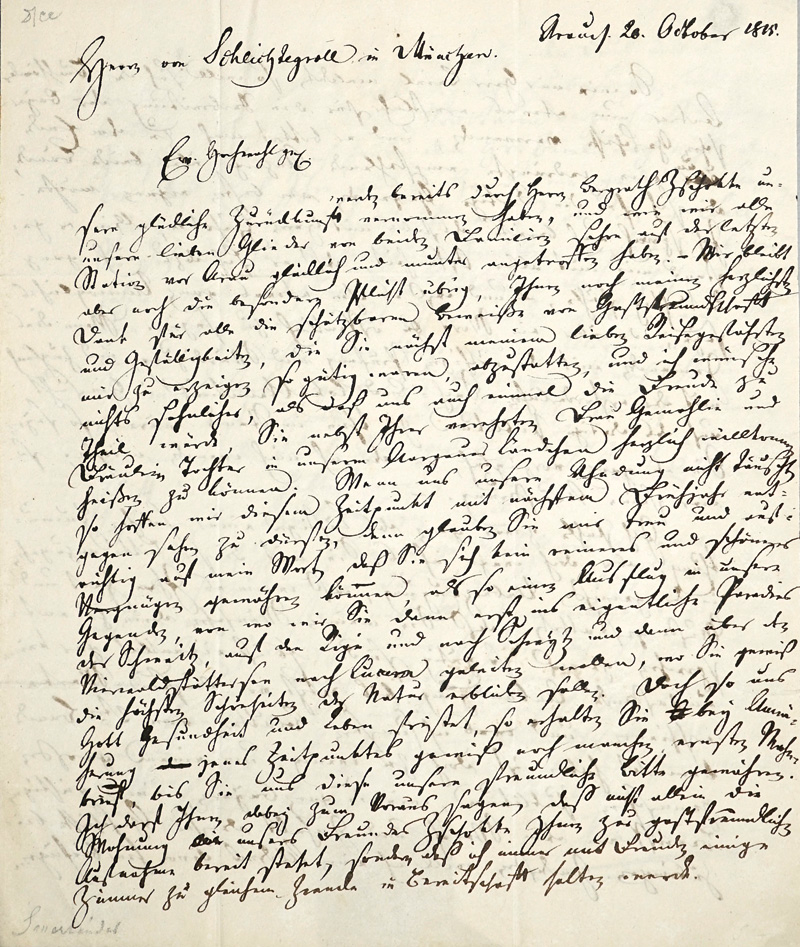 Aarau. 20. October 1815.
Herrn von Schlichtegroll in München.
Ew. Hochwohlgeb.
werden bereits durch Herrn Bergrath Zschokke un-
sere glückliche Zurückkunft vernommen haben, und wie wir alle
unsere lieben Glieder von beiden Familien schon auf der letzten
Station vor Arau glücklich und munter angetroffen haben. - Mir bleibt
aber noch die besondere Pflicht übrig, Ihnen noch meinen herzlichsten
Dank für alle die schätzbaren Beweise von Gastfreundschaft
und Gefälligkeiten, die Sie nächst meinem lieben Reisegefährten
mir zu erzeigen so gütig waren, abzustatten, und ich wünsche
nichts sehnlicher, als daß uns auch einmal die Freude zu
Theil würde, Sie nebst Ihrer verehrten Frau Gemahlin und
Fräulein Tochter in unserm Aargauer Ländchen herzlich willkomm
heißen zu können. Wenn uns unsere Ahndung nicht täuscht
so hoffen wir diesem Zeitpunkt mit nächstem Frühjahr ent-
gegen sehen zu dürfen, denn glauben Sie mir treu und auf-
richtig auf mein Wort, daß Sie sich kein reineres und schöneres
Vergnügen gewähren können, als so einen Ausflug in unsere
Gegenden, von wo wir Sie dann erst ins eigentliche Paradies
der Schweitz, auf den Rigi und nach Schwytz und dann über den
Vierwaldstättersee nach Lucern geleiten wollen, wo Sie gewiß
die höchsten Schönheiten der Natur erblicken sollen. Doch so uns
Gott Gesundheit und Leben fristet, so erhalten Sie bey Annä-
herung jenes Zeitpunktes gewiß noch manchen ernsten Mahn-
brief, bis Sie uns diese unsere freundliche Bitte gewähren.
Ich darf Ihnen dabey zum Voraus sagen, daß nicht allein die
Wohnung unsers Freundes Zschokke Ihnen zur gastfreundlichen
Aufnahme bereit stehet, sondern daß ich immer mit Freuden einige
Zimmer zu gleichem Zwecke in Bereitschaft halten werde.